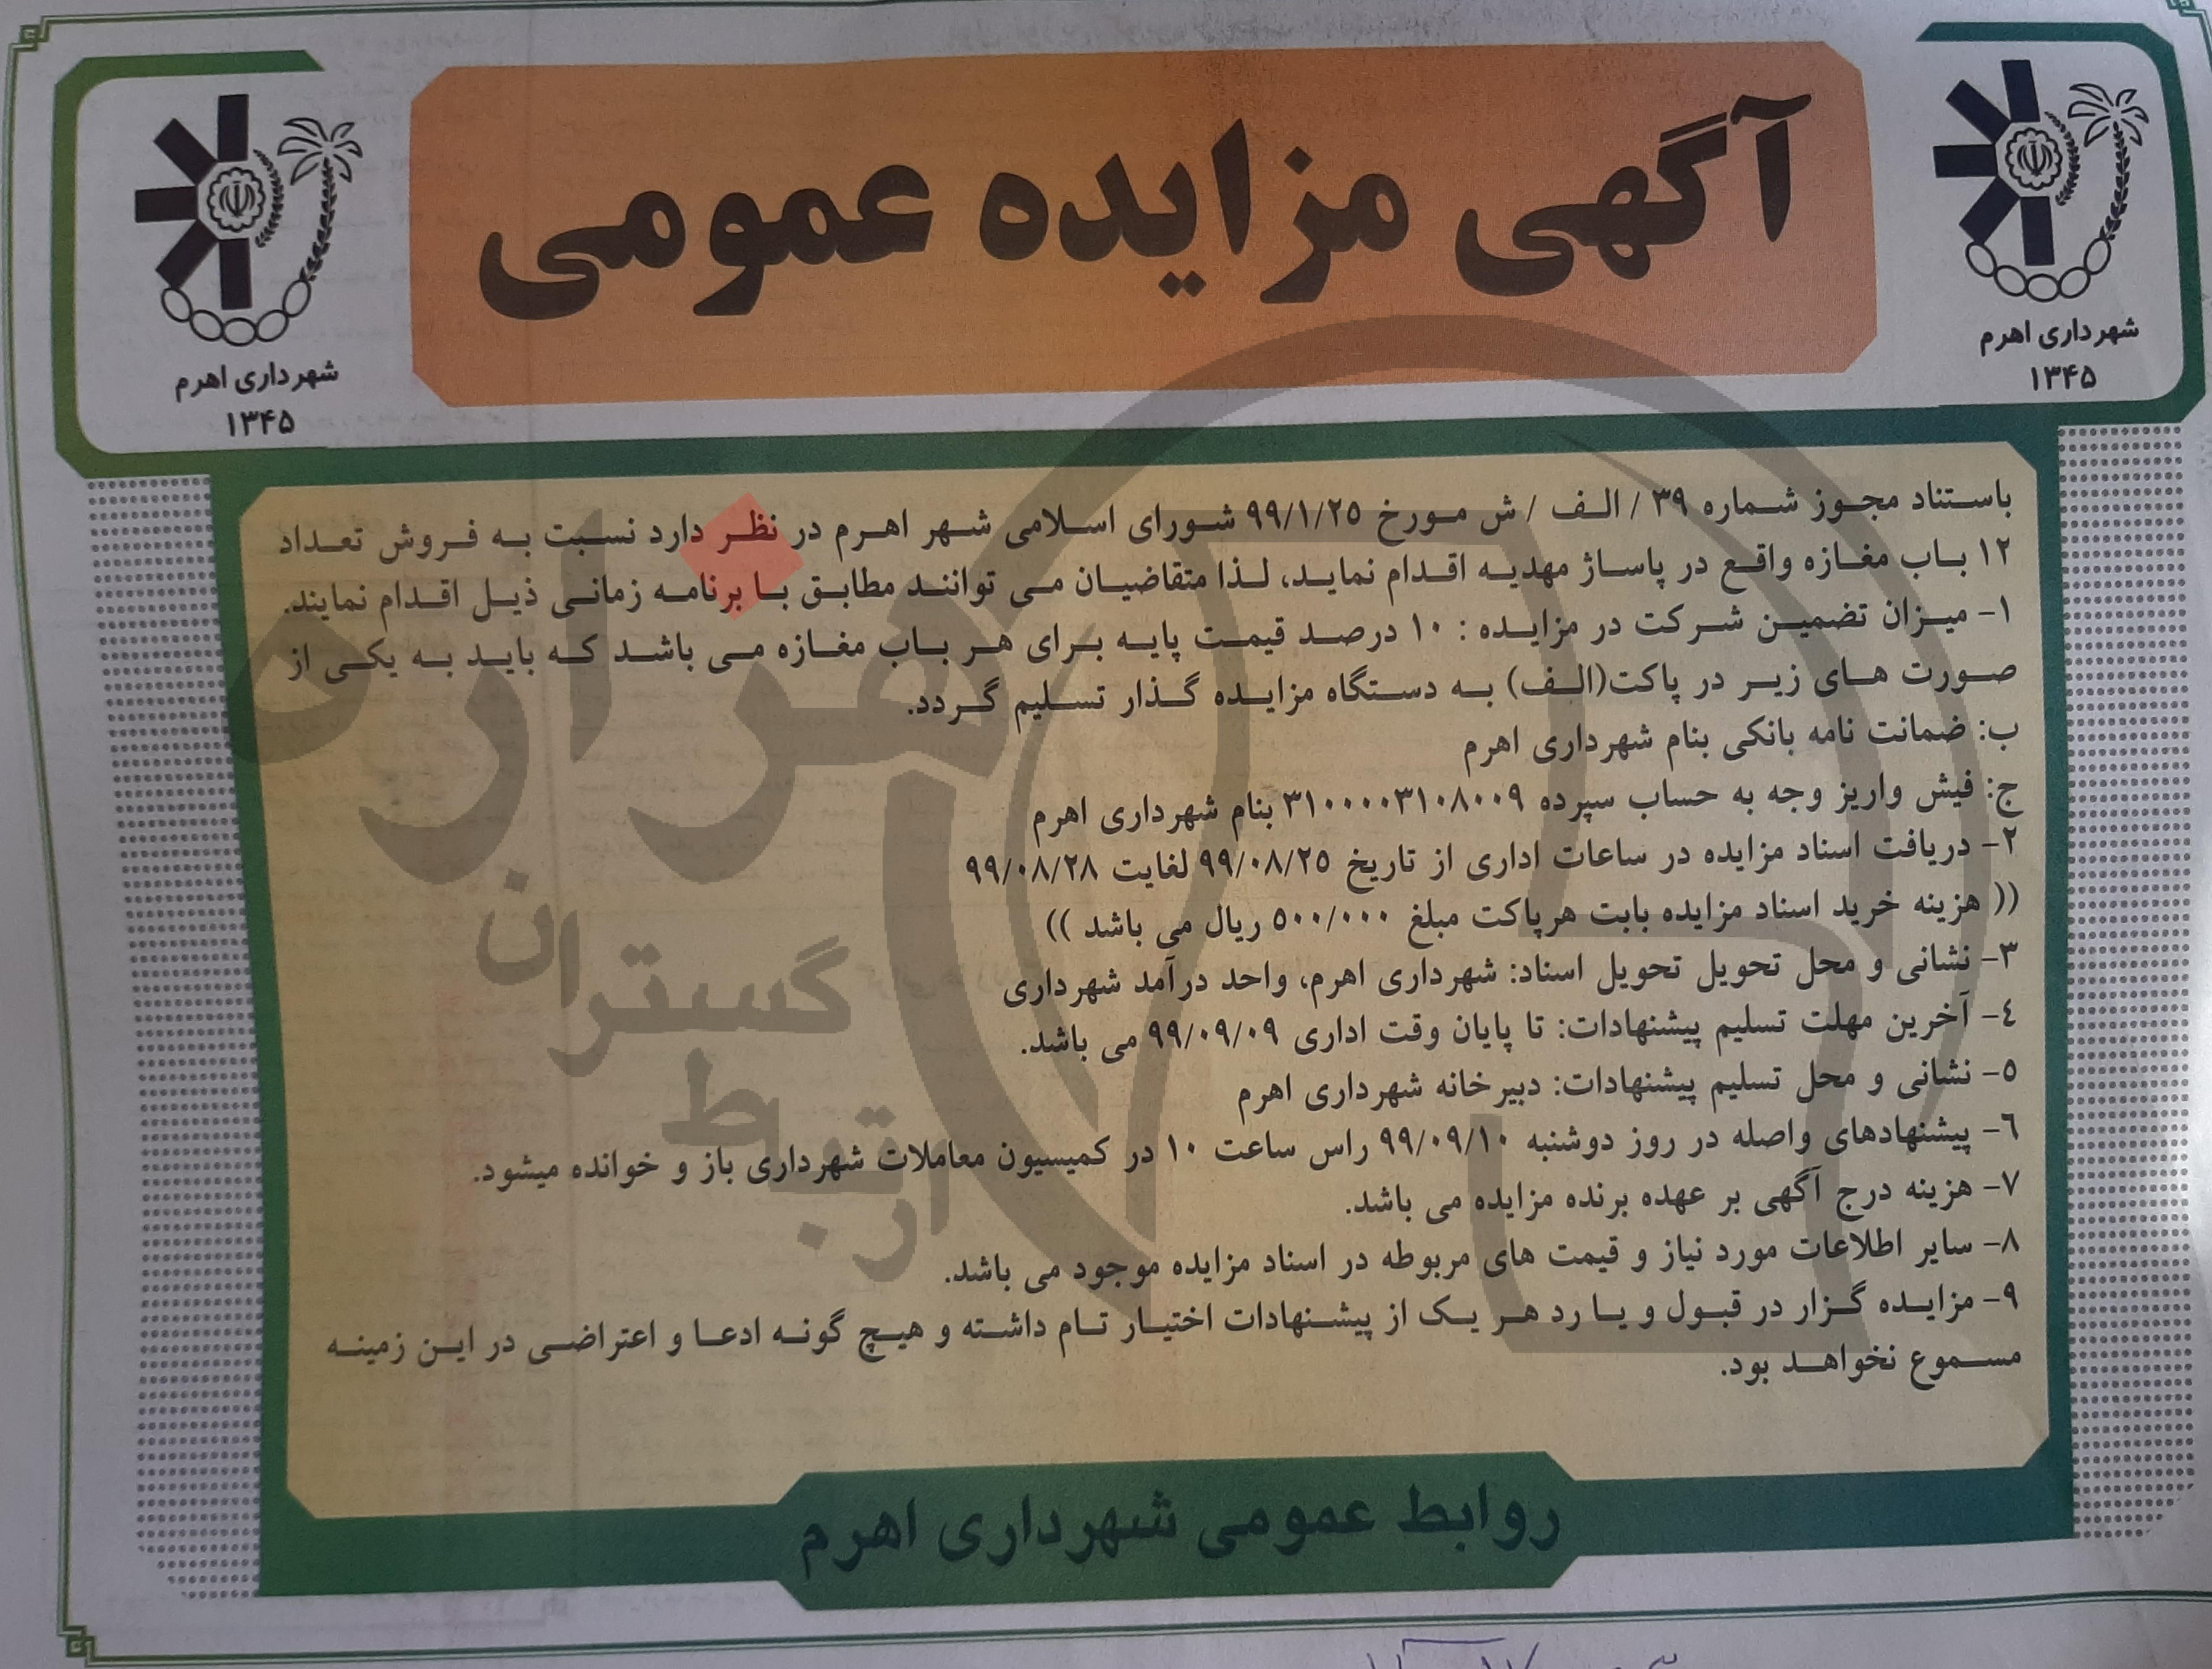 آگهی مزایده عمومی
شهرداری اهرم
۱۳۴۵
شهرداری اهرم
۱۳۴۵
باستناد مجوز شماره ۳۹ / الف / ش مورخ ۹۹/۱/۲۵ شورای اسلامی شهر اهرم در نظر دارد نسبت به فروش تعداد
۱۲ باب مغازه واقع در پاساژ مهدیه اقدام نماید، لذا متقاضیان می توانند مطابق با برنامه زمانی ذیل اقدام نمایند.
۱- میزان تضمین شرکت در مزایده : ۱۰ درصد قیمت پایه برای هر باب مغازه می باشد که باید به یکی از
صورت های زیر در پاکت(الف) به دستگاه مزایده گذار تسلیم گردد.
ب: ضمانت نامه بانکی بنام شهرداری اهرم
ج: فیش واریز وجه به حساب سپرده ۳۱۰۰۰۰۳۱۰۸۰۰۹ بنام شهرداری اهرم
۲- دریافت اسناد مزایده در ساعات اداری از تاریخ ۹۹/۰۸/۲۵ لغایت ۹۹/۰۸/۲۸
(( هزینه خرید اسناد مزایده بابت هرپاکت مبلغ ۵۰۰/۰۰۰ ریال می باشد ))
۳- نشانی و محل تحویل تحویل اسناد: شهرداری اهرم، واحد درآمد شهرداری
٤- آخرین مهلت تسلیم پیشنهادات: تا پایان وقت اداری ۹۹/۰۹/۰۹ می باشد.
۵- نشانی و محل تسلیم پیشنهادات: دبیرخانه شهرداری اهرم
٦- پیشنهادهای واصله در روز دوشنبه ۹۹/۰۹/۱۰ راس ساعت ۱۰ در کمیسیون معاملات شهرداری باز و خوانده میشود.
۷- هزینه درج آگهی بر عهده برنده مزایده می باشد.
۸- سایر اطلاعات مورد نیاز و قیمت های مربوطه در اسناد مزایده موجود می باشد.
۹- مزایده گزار در قبول و یا رد هر یک از پیشنهادات اختیار تام داشته و هیچ گونه ادعا و اعتراضی در این زمینه
مسموع نخواهد بود.
روابط عمومی شهرداری اهرم
هزاره
گستران
ارتباط